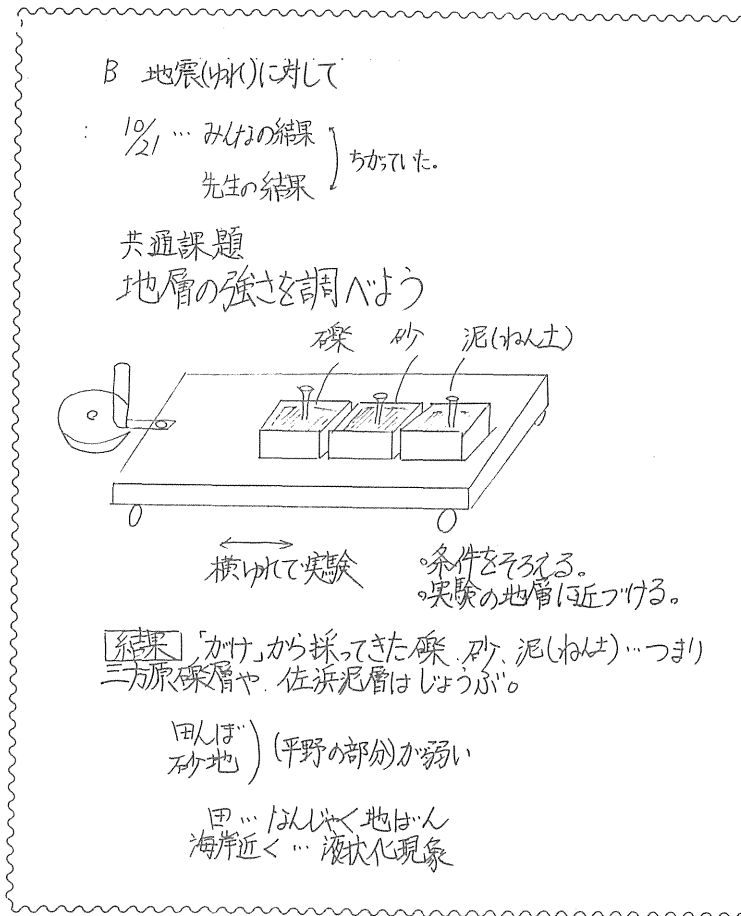 B 地震(ゆれ)に対して
: 10/21 … みんなの結果
先生の結果
ちがっていた。
共通課題
地層の強さを調べよう
礫 砂 泥(ねん土)
横ゆれで実験
○条件をそろえる。
○実験の地層に近づける。
結果 「がけ」から採ってきた礫、砂、泥(ねん土)…つまり
三方原礫層や、佐浜泥層はじょうぶ。
田んぼ
砂地
(平野の部分)が弱い
田…なんじゃく地ばん
海岸近く…液状化現象